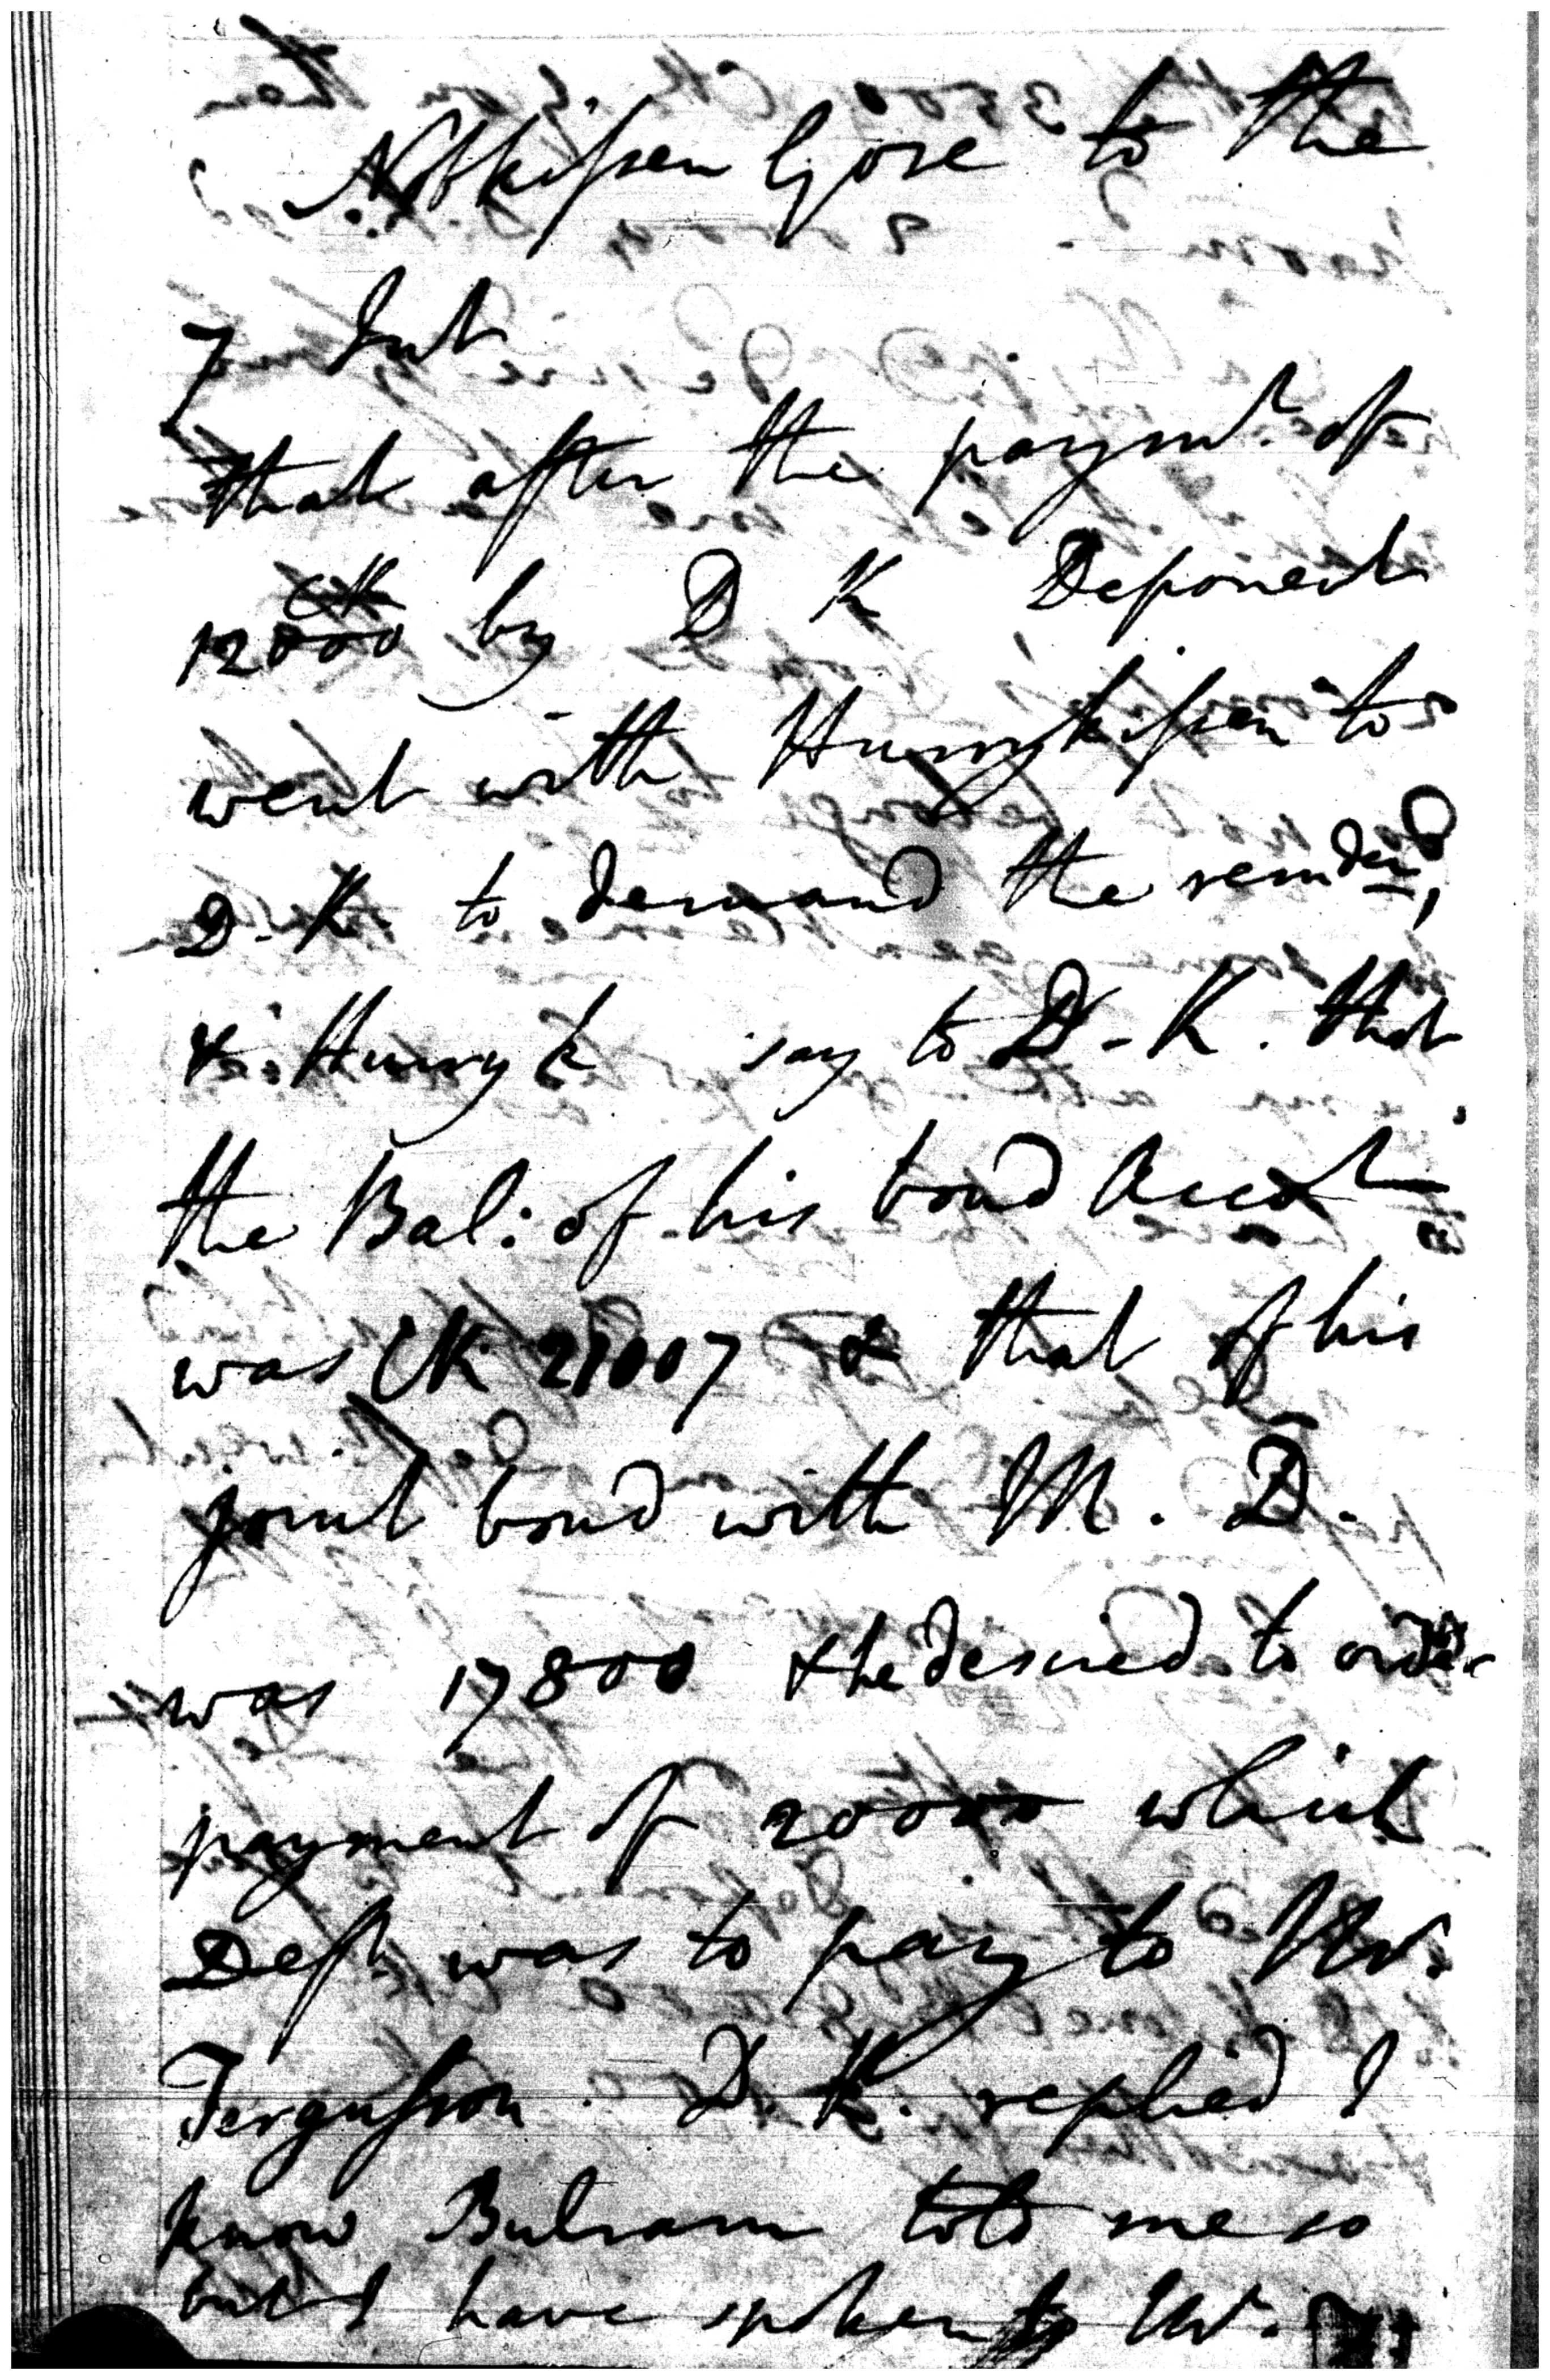 Nobkissen Gose to the
7 Int
that after the paymt. of
CR
12000 by D K Deponent
went with Hurrykissen to
D. K. to demand the remder,
& Hurry k say to D. K. that
the Bal: of his bond Acct
was CR 21007 & that of his
joint bond with M. D.
was 17800 & he desired to order
payment of 20000 which
Deft. was to pay to Mr.
Fergusson. D. K. replied I
know Bulram told me so
but I have spoken to Mr.